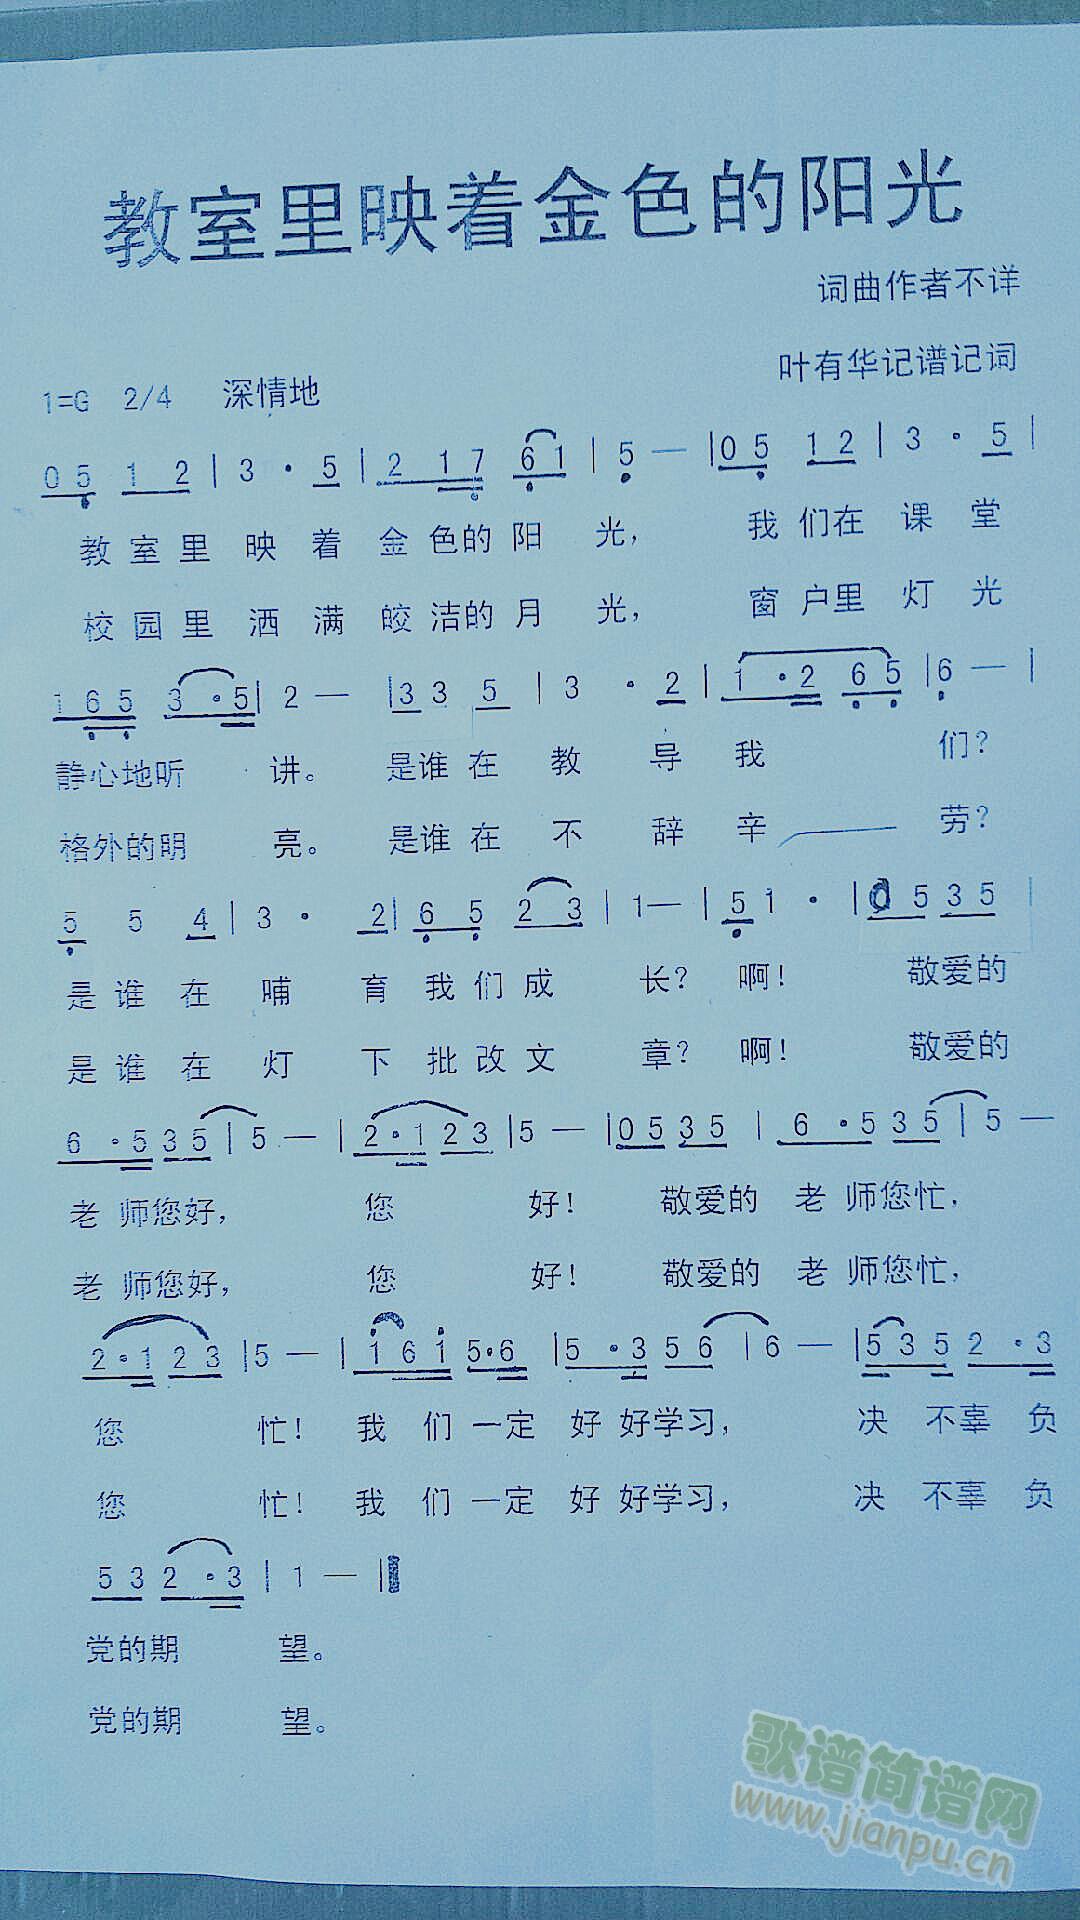 教室里映着金色的阳光
词曲作者不详
叶有华记谱记词
1=G 2/4 深情地
0 5 1 2 | 3 · 5 | 2 1 7 6 1 | 5 — | 0 5 1 2 | 3 · 5 |
教室里映着金色的阳光，我们在课堂
校园里洒满皎洁的月光，窗户里灯光
1 6 5 3 · 5 | 2 — | 3 3 5 | 3 · 2 | 1 · 2 6 5 | 6 — |
静心地听讲。是谁在教导我们？
格外的明亮。是谁在不辞辛——劳？
5 5 4 | 3 · 2 | 6 5 2 3 | 1 — | 5 1 · | 0 5 3 5 |
是谁在哺育我们成长？啊！敬爱的
是谁在灯下批改文章？啊！敬爱的
6 · 5 3 5 | 5 — | 2 · 1 2 3 | 5 — | 0 5 3 5 | 6 · 5 3 5 | 5 —
老师您好，您好！敬爱的老师您忙，
老师您好，您好！敬爱的老师您忙，
2 · 1 2 3 | 5 — | 1 6 1 5 · 6 | 5 · 3 5 6 | 6 — | 5 3 5 2 · 3
您忙！我们一定好好学习，决不辜负
您忙！我们一定好好学习，决不辜负
5 3 2 · 3 | 1 — ‖
党的期望。
党的期望。
歌谱简谱网
www.jianpu.cn